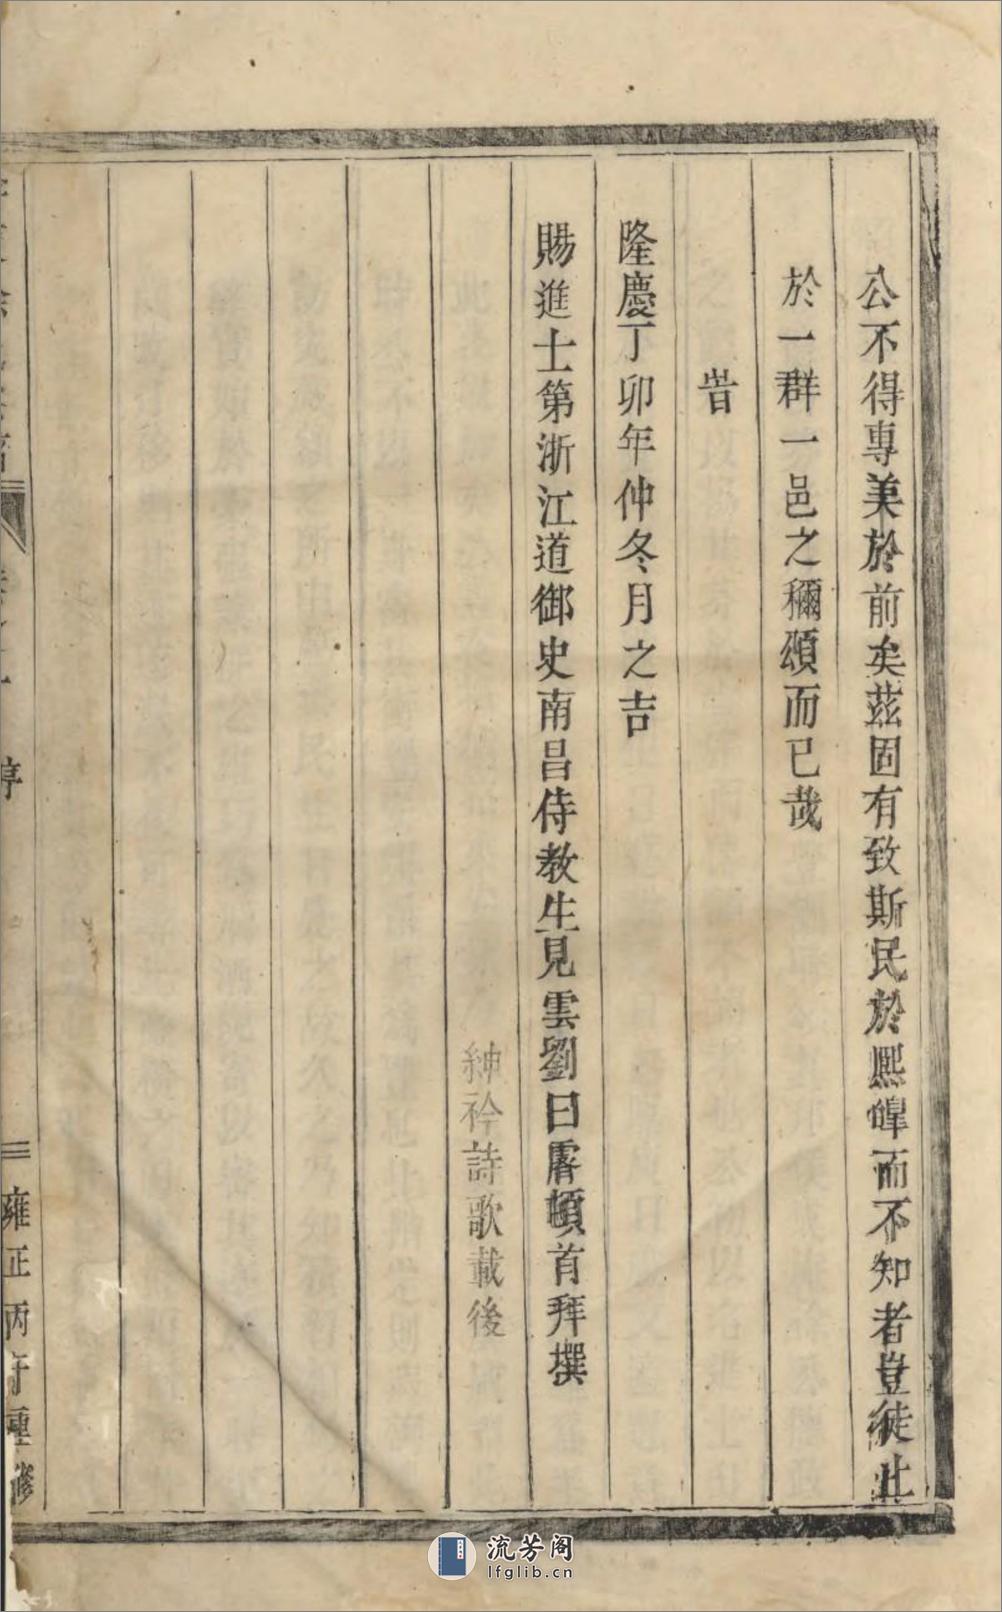 公不得專美於前矣茲固有致斯民於熈皥而不知者豈徒止
於一群一邑之穪頌而已㢤
旹
隆慶丁卯年仲冬月之吉
賜進士第浙江道御史南昌侍教生見雲劉曰睿頓首拜撰
紳衿詩歌載後
序
雍正丙午重修
流芳阁
lfglib.cn